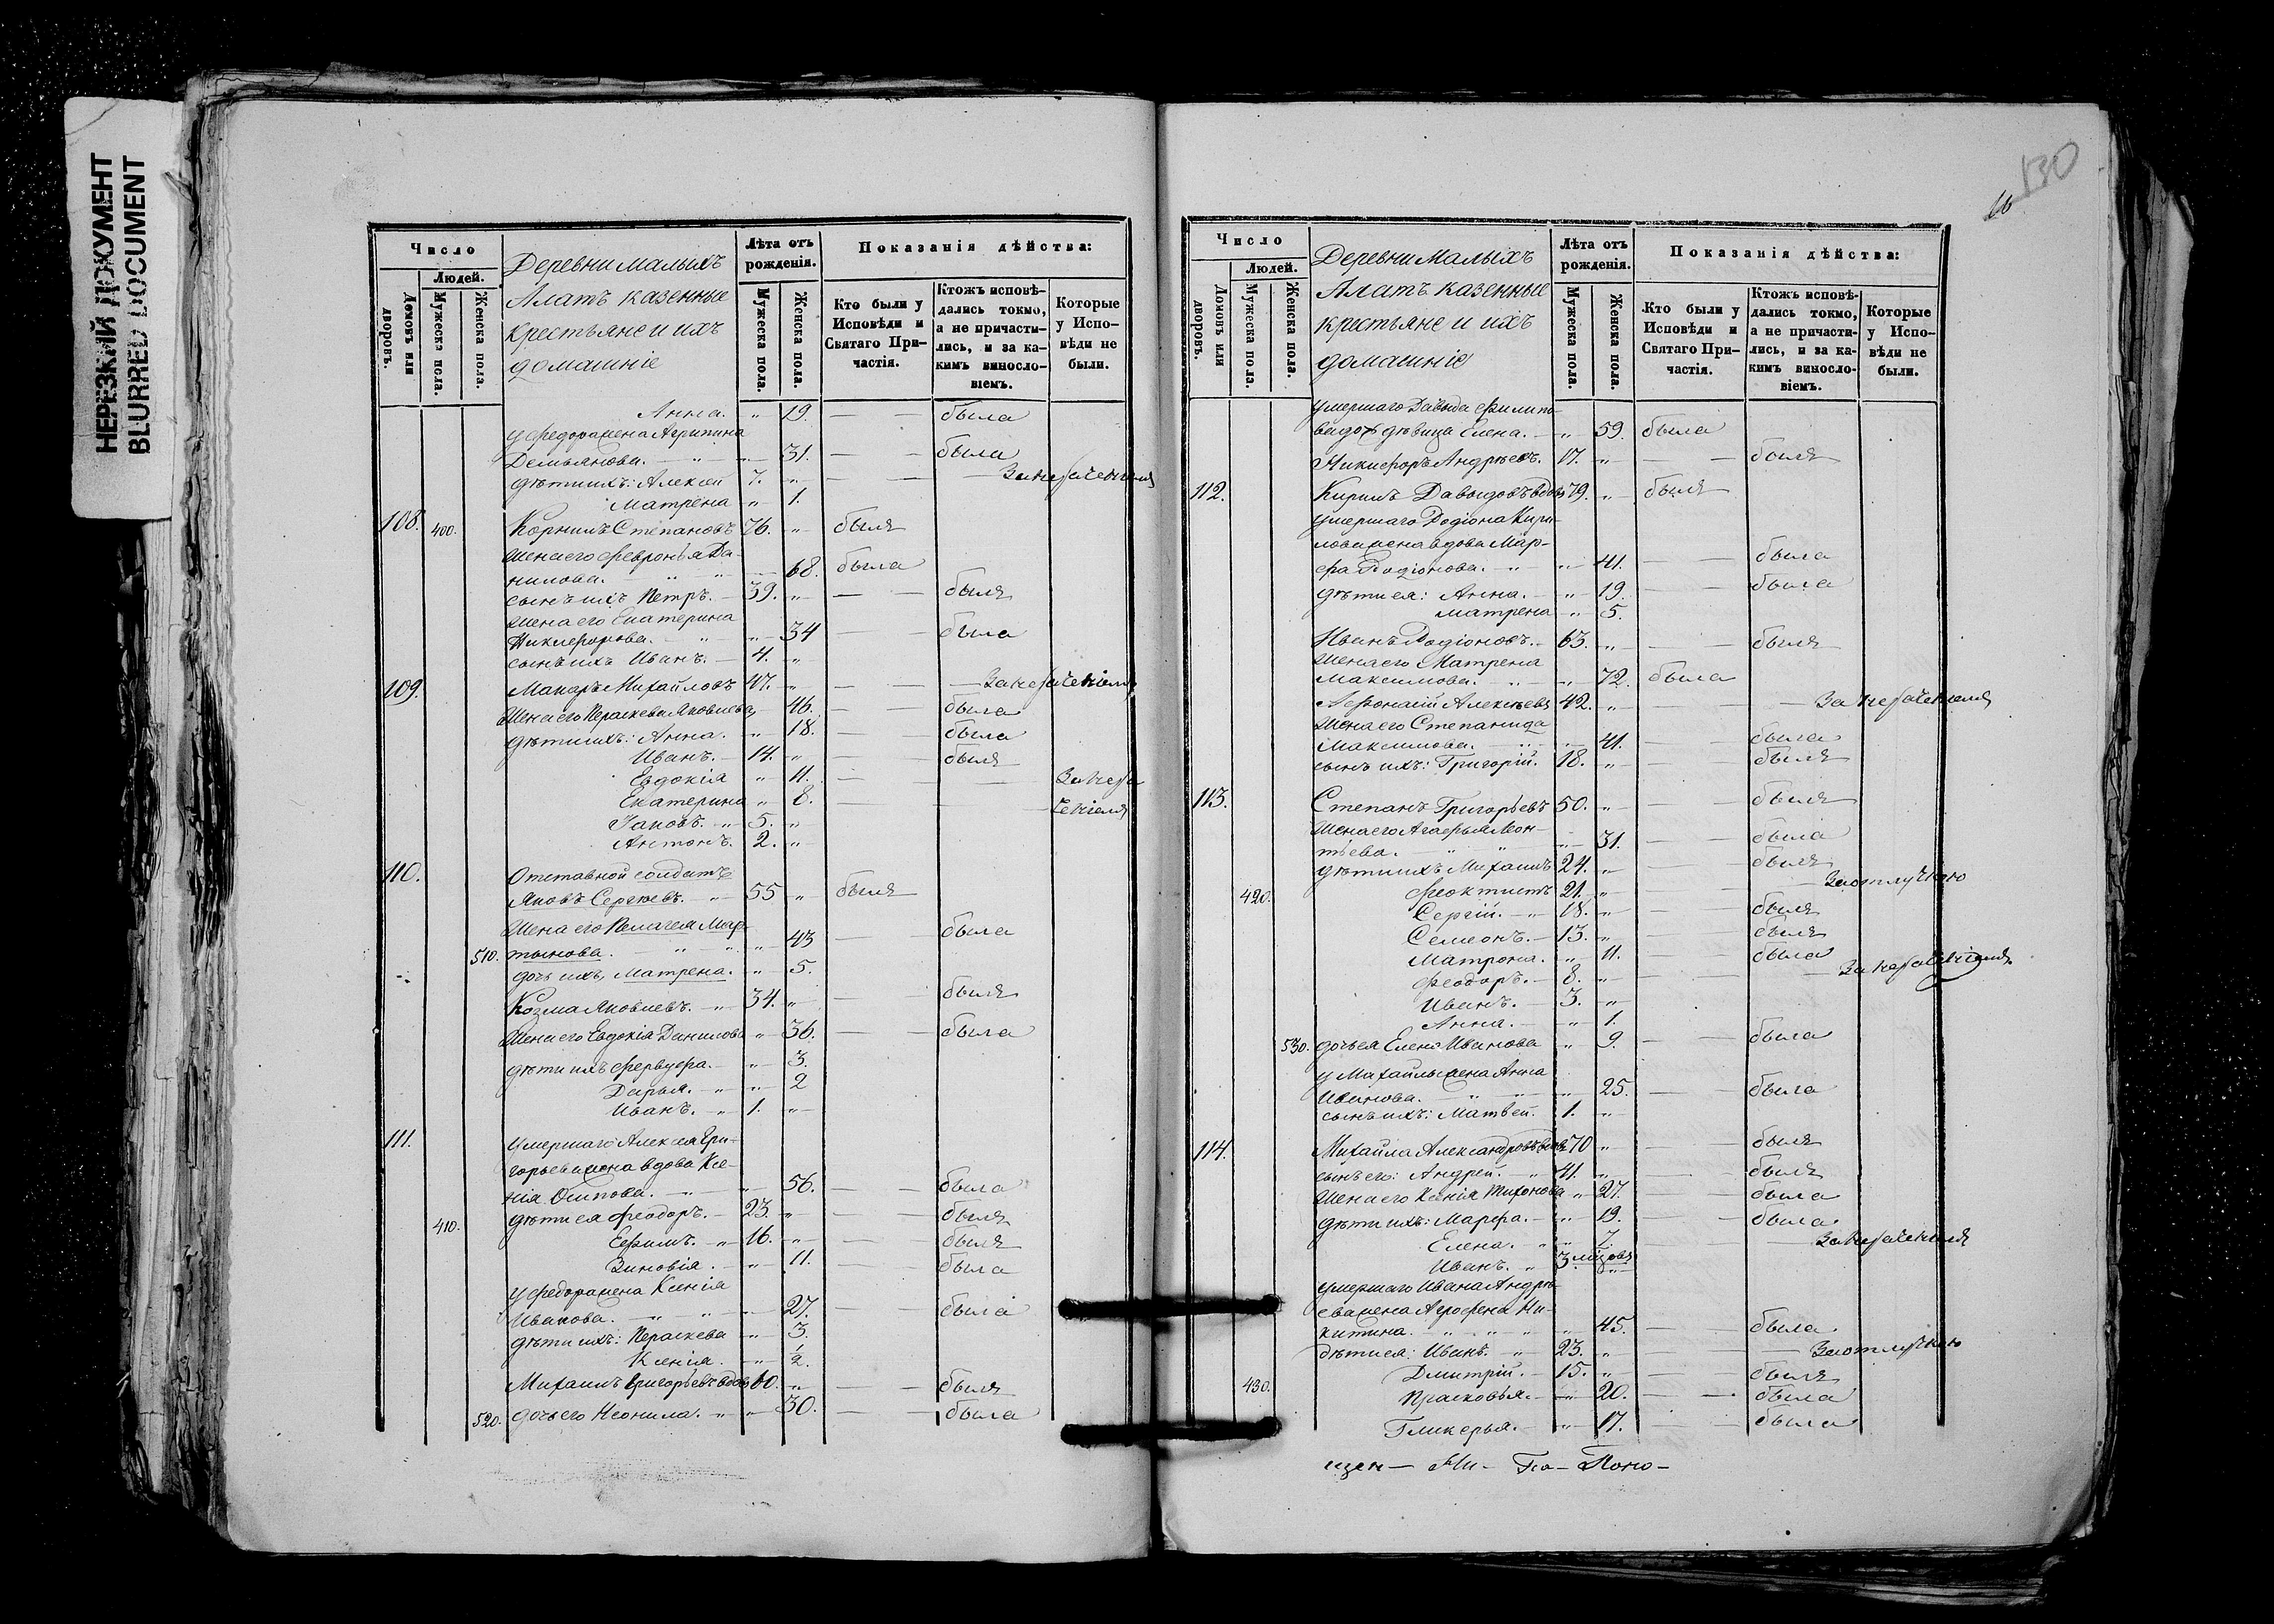 НЕРЕЗКИЙ ДОКУМЕНТ
BLURRED DOCUMENT
Число
Людей.
Домовъ или дворовъ.
Мужеска пола.
Женска пола.
Деревни Малыхъ
Алатъ казенные
крестьяне и ихъ
домашніе
Лѣта отъ рожденія.
Мужеска пола.
Женска пола.
Показанія дѣйства:
Кто были у Исповѣди и Святаго Причастія.
Ктожъ исповѣдались токмо, а не причастились, и за какимъ винословіемъ.
Которые у Исповѣди не были.
Анна. " 19. — — была
у Федора жена Агрипина
Демьянова. " " 31. — — была
дѣти ихъ: Алексѣй 7. " — —
Матрена " 1.
108. 400. Корнилъ Степановъ 76. " былъ
жена его Февронья Да-
нилова. " " 68. была
сынъ ихъ Петръ. 39. " — — былъ
жена его Екатерина
Никифорова. " " 34 — — была
сынъ ихъ Иванъ. 4. "
109. Макаръ Михайловъ 47. " — —
жена его Параскева Яковлева " 46. — — была
дѣти ихъ: Анна. " 18. — — была
Иванъ. 14. " — — былъ
Евдокія " 11. — —
Екатерина " 8. — —
Іаковъ. " 5. "
Антонъ. 2. "
110. Отставной солдатъ
Яковъ Сергѣевъ. " 55 " былъ
жена его Пелагея Мар-
510. тынова. " " " 43 — — была
дочь ихъ, Матрена. " 5.
Козма Яковлевъ. " 34. " — — былъ
жена его Евдокія Данилова " 36. — — была
дѣти ихъ " 3.
Дарья. " " 2
Иванъ. " 1. "
111. умершаго Алексѣя Гри-
горьева жена вдова Ксе-
нія Осипова. " " 56. — — была
410. дѣти ея Феодоръ. 23. " — — былъ
Ефимъ. " 16. " — — былъ
Зиновія. " 11. — — была
у Федора жена Ксенія
Иванова. " " 27. — — была
дѣти ихъ: Параскева " 3.
Ксенія. " ½.
Михаилъ Григорьевъ вдовъ 60. " — — былъ
520. дочь его Неонила. " " 30. — — была
130
Число
Людей.
Домовъ или дворовъ.
Мужеска пола.
Женска пола.
Деревни Малыхъ
Алатъ казенные
крестьяне и ихъ
домашніе
Лѣта отъ рожденія.
Мужеска пола.
Женска пола.
Показанія дѣйства:
Кто были у Исповѣди и Святаго Причастія.
Ктожъ исповѣдались токмо, а не причастились, и за какимъ винословіемъ.
Которые у Исповѣди не были.
умершаго Давыда Филипо-
ва дочь дѣвица Елена. " 59. была
Никифоръ Андреевъ. 17. " — — былъ
112. Кирилъ Давыдовъ вдовъ 79. " былъ
умершаго Родіона Кири-
лова жена вдова Мар-
фа Родіонова. " " 41. — — была
дѣти ея: Анна. " 19. — — была
Матрена " 5.
Иванъ Родіоновъ. 63. " — — былъ
жена его Матрена
Максимова. " " 72. была
Афонасій Алексѣевъ 42. " — —
жена его Степанида
Максимова. " " 41. — — была
сынъ ихъ: Григорій. 18. " — — былъ
113. Степанъ Григорьевъ 50. " — — былъ
жена его Агафья Леон-
тьева. " " " 31. — — была
дѣти ихъ Михаилъ 24. " — — былъ
420. Феоктистъ 21. " — — За отлучкою
Сергій. " 18. " — — былъ
Семеонъ. 13. " — — былъ
Матрона. " 11. — — была
Феодоръ. 8. " — —
Иванъ. 3. "
Анна. " 1.
530. дочь ея Елена Иванова " 9. — — была
у Михайлы жена Анна
Иванова. " " " 25. — — была
сынъ ихъ: Матвей. 1. "
114. Михайла Александровъ вдовъ 70 " — — былъ
сынъ его: Андрей. " 41. " — — былъ
жена его Ксенія Тихонова " 27. — — была
дѣти ихъ: Марфа. " 19. — — была.
Елена. " " 7. — —
Иванъ. " 3 мѣцовъ "
умершаго Ивана Андре-
ева жена Агрофена Ни-
китина. " " " " 45. — — была.
дѣти ея: Иванъ. " 23. " — — За отлучкою
Дмитрій. 15. " — — былъ
430. Прасковья. " 20. — — была
Гликерья. " 17. — — была
щен— Ми— Га— Поно—